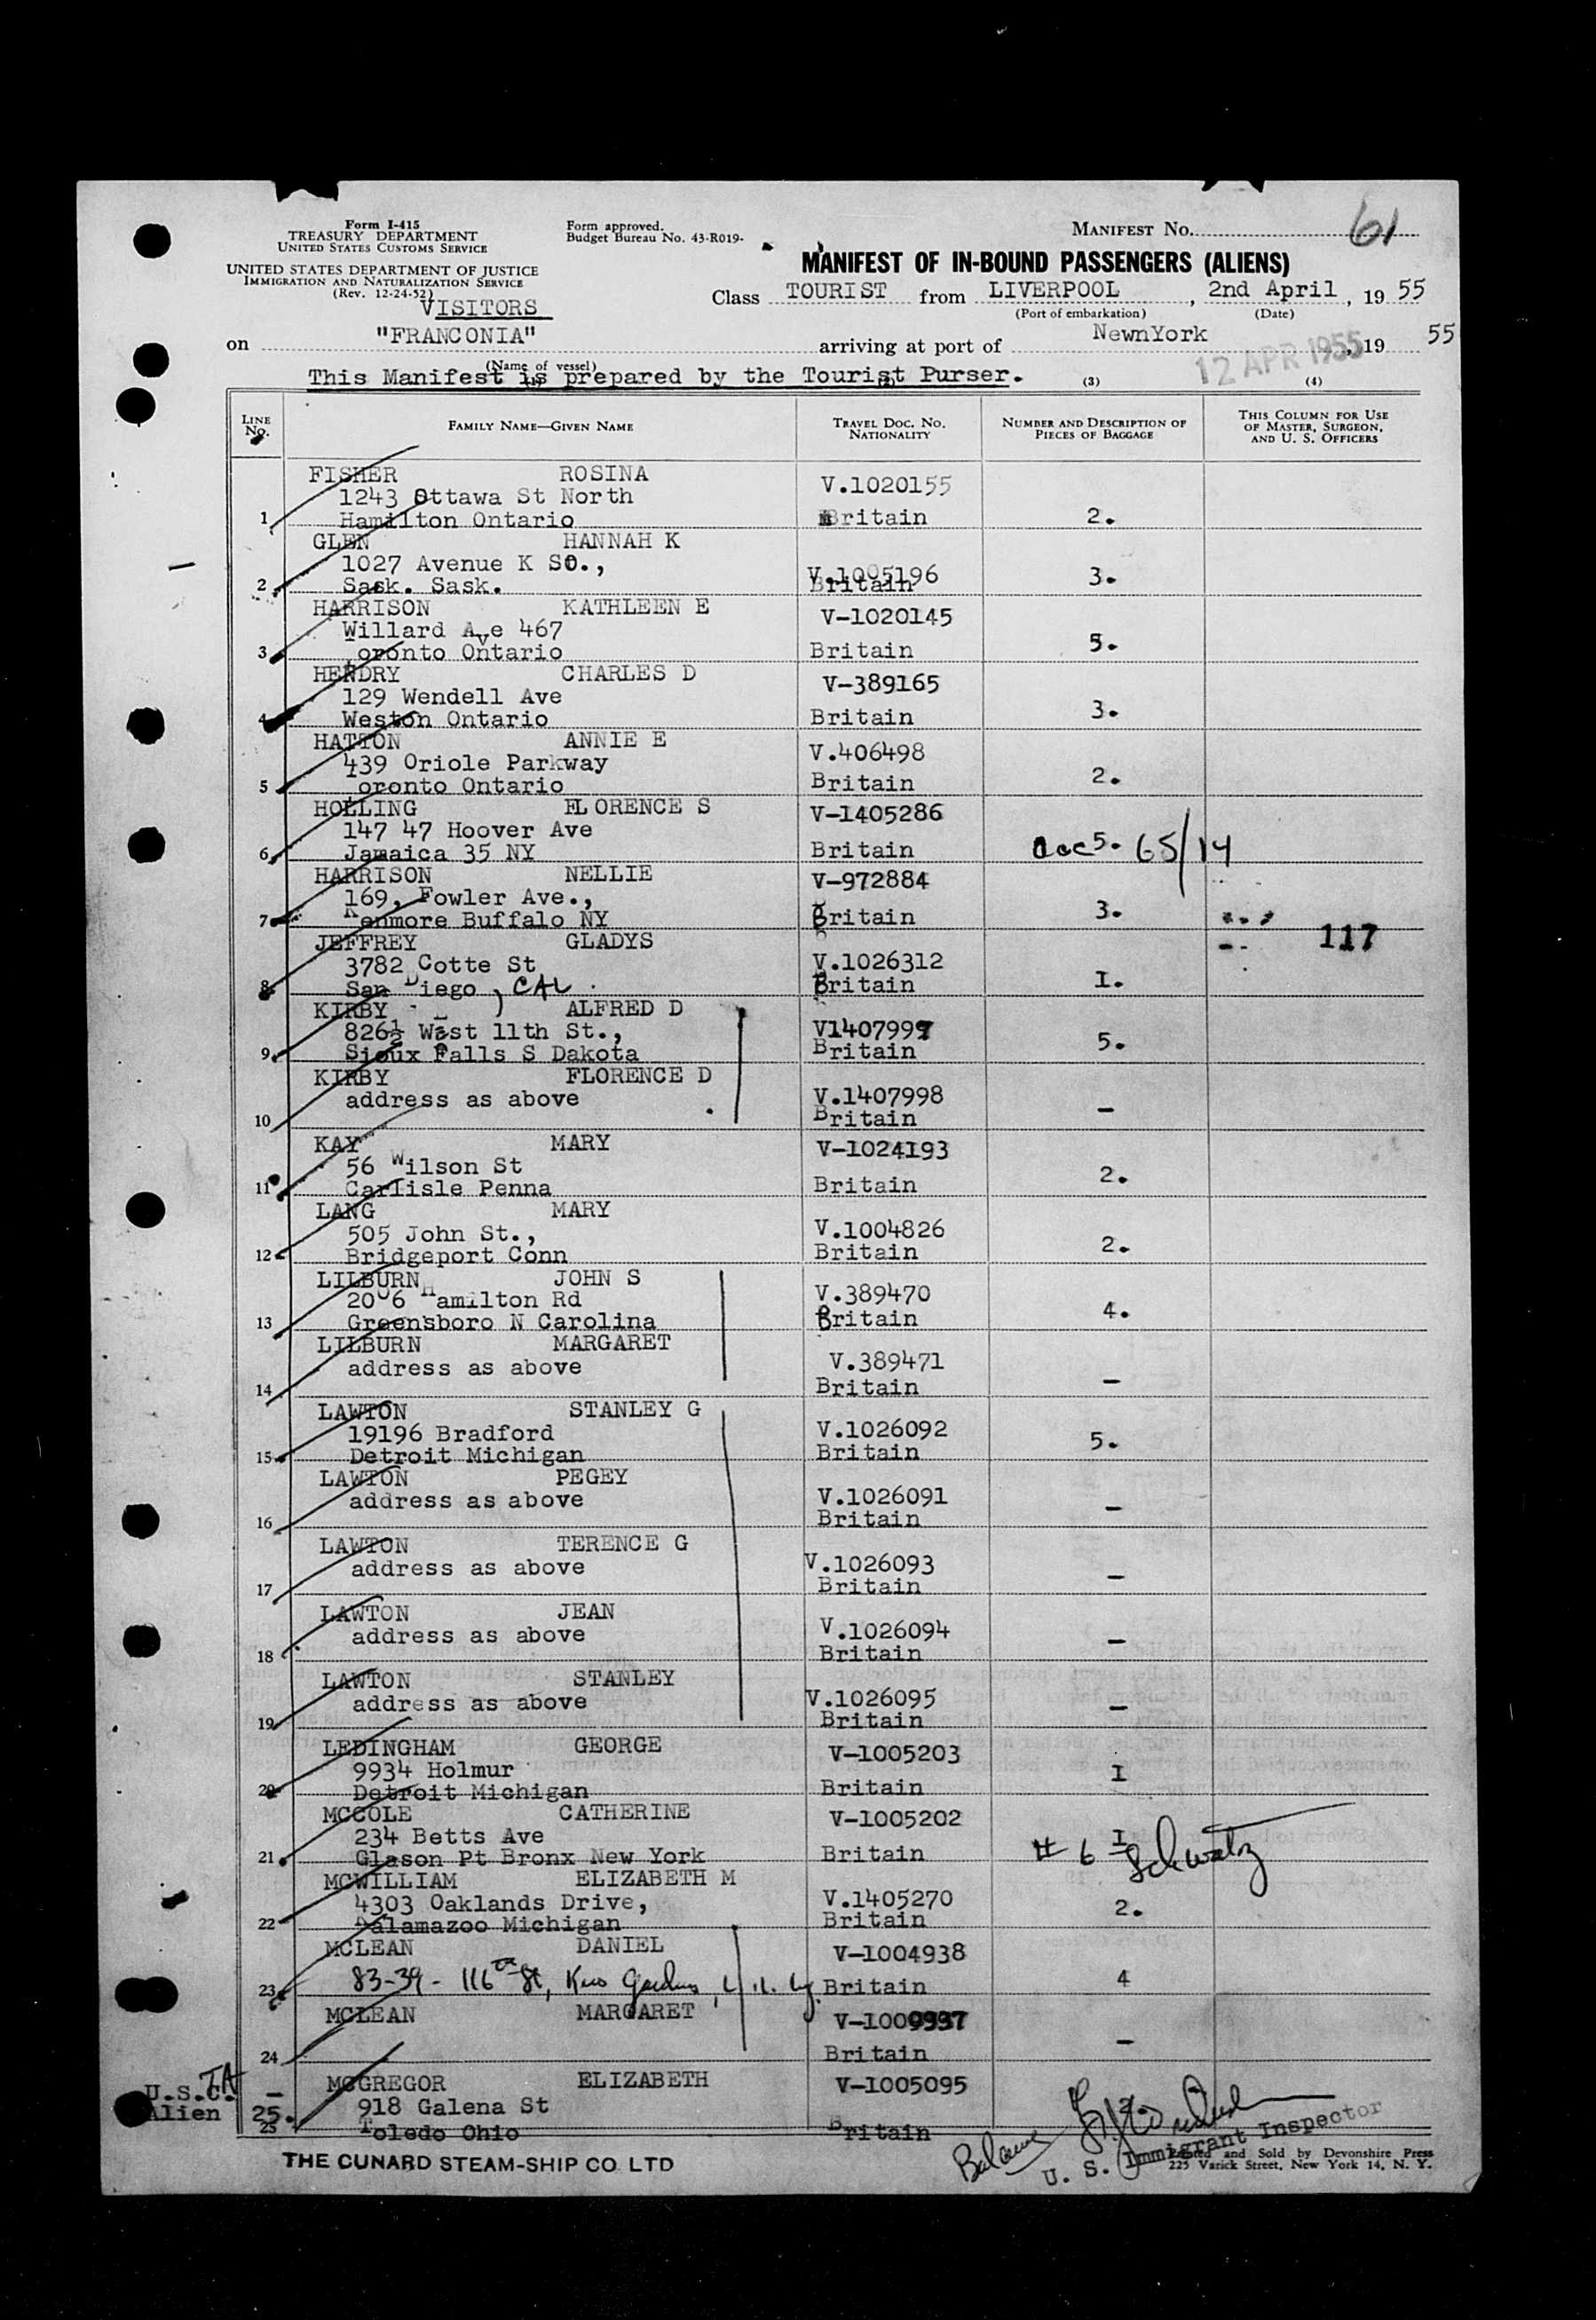 Form I-415
TREASURY DEPARTMENT
UNITED STATES CUSTOMS SERVICE
UNITED STATES DEPARTMENT OF JUSTICE
IMMIGRATION AND NATURALIZATION SERVICE
(Rev. 12-24-52)
VISITORS
Form approved.
Budget Bureau No. 43-R019-
MANIFEST No. 61
MANIFEST OF IN-BOUND PASSENGERS (ALIENS)
Class TOURIST from LIVERPOOL, 2nd April, 19 55
(Port of embarkation) (Date)
on "FRANCONIA" arriving at port of NewnYork, 19 55
12 APR 1955
(Name of vessel)
This Manifest is prepared by the Tourist Purser. (3) (4)
LINE No. FAMILY NAME—GIVEN NAME TRAVEL DOC. NO. NATIONALITY NUMBER AND DESCRIPTION OF PIECES OF BAGGAGE THIS COLUMN FOR USE OF MASTER, SURGEON, AND U. S. OFFICERS
FISHER ROSINA V.1020155
1243 Ottawa St North
1 Hamilton Ontario Britain 2.
GLEN HANNAH K
1027 Avenue K SO., V.1005196
2 Sask. Sask. Britain 3.
HARRISON KATHLEEN E V-1020145
Willard Ave 467
3 Toronto Ontario Britain 5.
HENDRY CHARLES D V-389165
129 Wendell Ave
4 Weston Ontario Britain 3.
HATTON ANNIE E V.406498
439 Oriole Parkway
5 Toronto Ontario Britain 2.
HOLLING FLORENCE S V-1405286
147 47 Hoover Ave
6 Jamaica 35 NY Britain 5. 65/14
HARRISON NELLIE V-972884
169, Fowler Ave.,
7 Kenmore Buffalo NY Britain 3.
117
JEFFREY GLADYS
3782 Cotte St V.1026312
8 San Diego, CAL. Britain I.
KIRBY ALFRED D
826½ West 11th St., V1407997
9 Sioux Falls S Dakota Britain 5.
KIRBY FLORENCE D
address as above V.1407998
10 Britain –
KAY MARY V-1024193
56 Wilson St
11 Carlisle Penna Britain 2.
LANG MARY
505 John St., V.1004826
12 Bridgeport Conn Britain 2.
LILBURN JOHN S
2006 Hamilton Rd V.389470
13 Greensboro N Carolina Britain 4.
LILBURN MARGARET
address as above V.389471
14 Britain –
LAWTON STANLEY G
19196 Bradford V.1026092
15 Detroit Michigan Britain 5.
LAWTON PEGEY
address as above V.1026091
16 Britain –
LAWTON TERENCE G
address as above V.1026093
17 Britain –
LAWTON JEAN
address as above V.1026094
18 Britain –
LAWTON STANLEY
address as above V.1026095
19 Britain –
LEDINGHAM GEORGE V-1005203
9934 Holmur
20 Detroit Michigan Britain I
MCCOLE CATHERINE V-1005202
234 Betts Ave
21 Glason Pt Bronx New York Britain I
# 6 Schwatz
MCWILLIAM ELIZABETH M
4303 Oaklands Drive, V.1405270
22 Kalamazoo Michigan Britain 2.
MCLEAN DANIEL V-1004938
23 83-39- 116th St, Kew Gardens, L.I. Britain 4
MCLEAN MARGARET
24 Britain –
MCGREGOR ELIZABETH V-1005095
U.S.C. –
918 Galena St
Alien 25.
25 Toledo Ohio Britain
U. S. Immigrant Inspector
THE CUNARD STEAM-SHIP CO LTD
Printed and Sold by Devonshire Press
225 Varick Street, New York 14, N. Y.